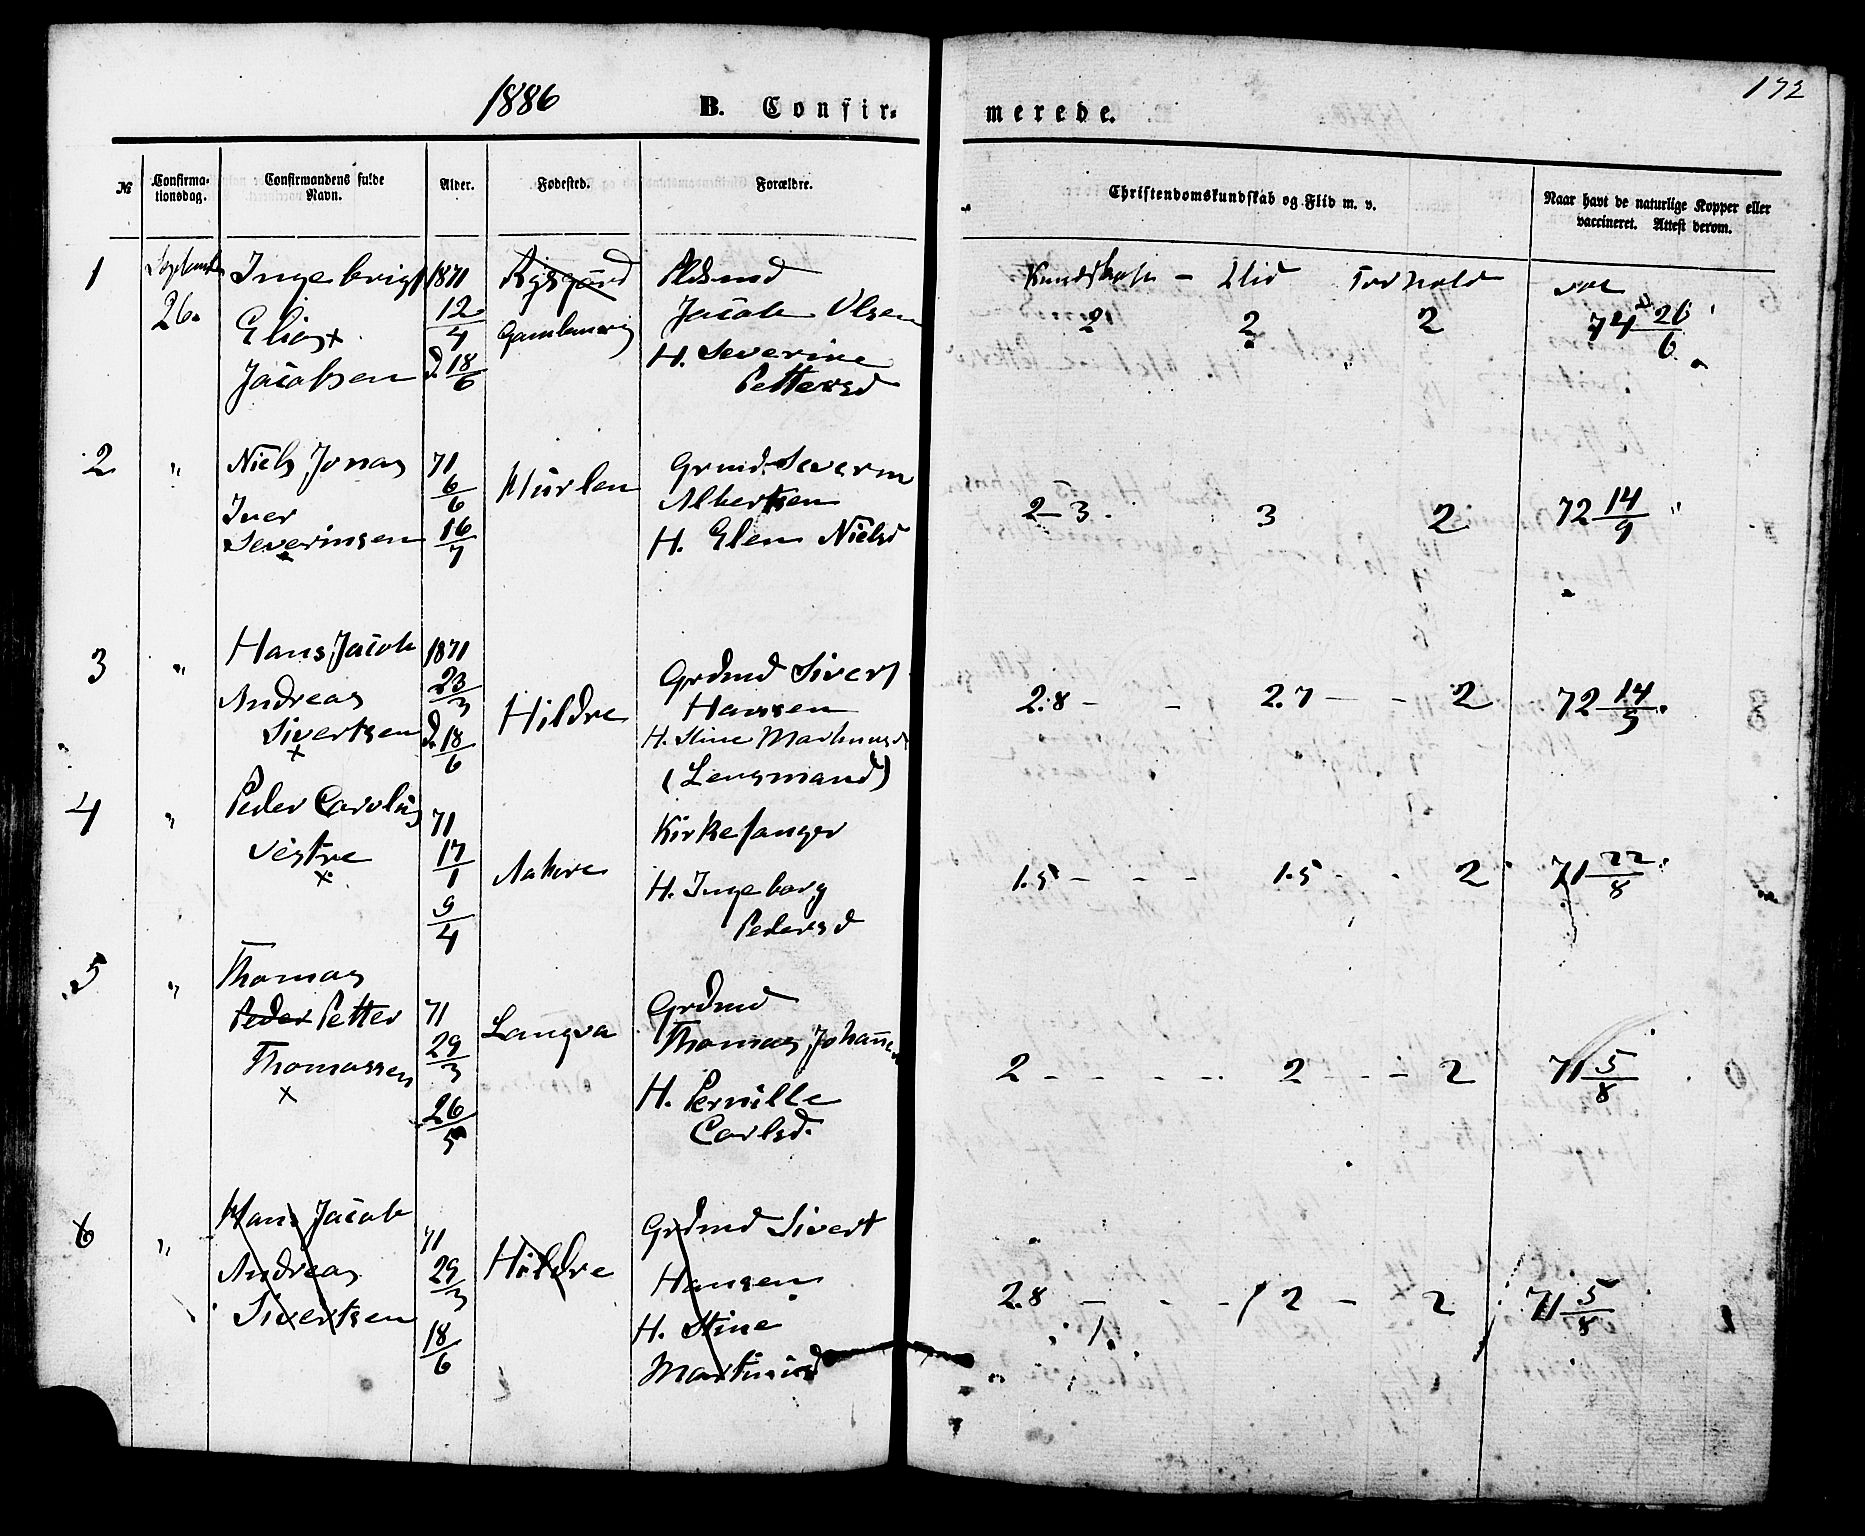 1886
B. Confir-
merede.
172
№
Confirma-
tionsdag.
Confirmandens fulde
Navn.
Alder.
Fødested.
Forældre.
Christendomskundskab og Flid m. v.
Naar havt de naturlige Kopper eller
vaccineret. Attest derom.
1
26.
Ingebrigt
Elias x
Jacobsen
1871
12/4
D. 18/6
Jacob Olsen
H. Severine
Pettersd
Kundskab - Flid Forhold
2 2 2
vac
74 26/6
2
"
Niels Jonas
Iver
Severinsen
71
6/6
16/7
Grmd. Severin
Albertsen
H. Elen Nielsd
2-3. 3 2
72 14/9 "
3
"
Hans Jacob
Andreas
Sivertsen
x
1871
23/3
D. 18/6
Hildre
Grdmd Sivert
Hansen
H. Stine Martinusd
(Lensmand)
2.8 - - 2.7 - - 2
72 14/9
4
"
Peder Carolus
Vestre
x
71
17/1
9/4
Kirkesanger
H. Ingeborg
Pedersd
1.5 - - - 1.5 - - 2
71 22/8
5
"
Thomas
Peder Petter
Thomassen
x
71
29/3
26/5
Langva
Grdmd
Thomas Johansen
H. Pernille
Carlsd.
2 - - - - 2 - - - 2
71 5/8
6
"
Hans Jacob
Andreas
Sivertsen
71
29/3
18/6
Hildre
Grdmd Sivert
Hansen
H. Stine
Martinusd
2.8 - - - 2 - 2
71 5/8